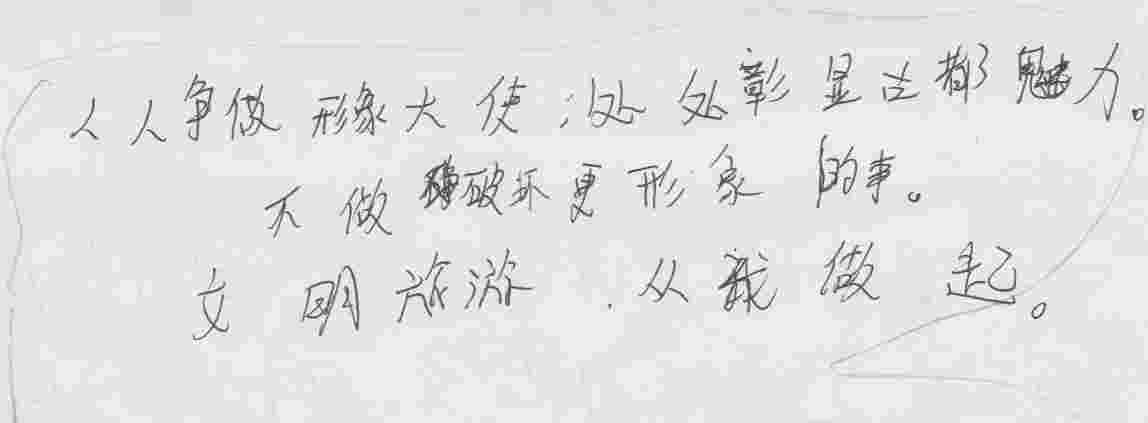 人人争做形象大使；处处彰显古都魅力。
不做破坏更形象的事。
文明旅游．从我做起。